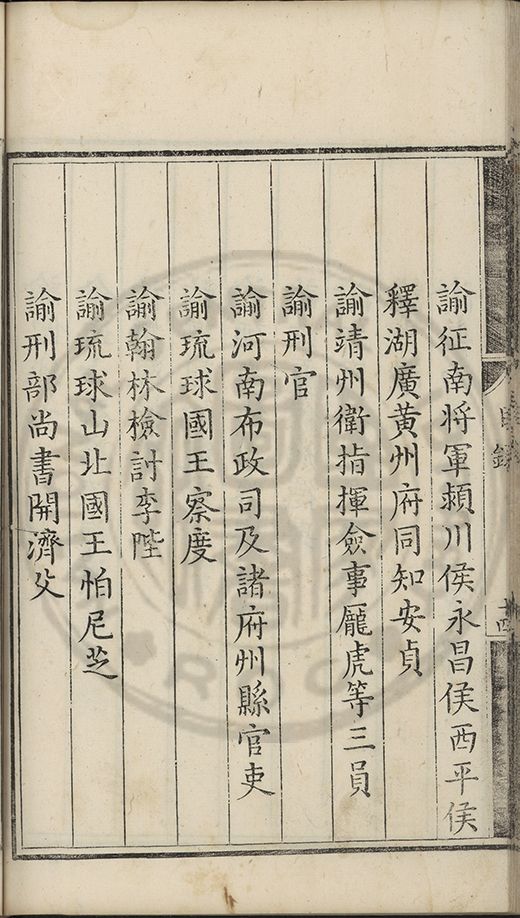 諭征南將軍頴川侯永昌侯西平侯
釋湖廣黃州府同知安貞
諭靖州衛指揮僉事龎虎等三員
諭刑官
諭河南布政司及諸府州縣官吏
諭琉球國王察度
諭翰林檢討李陞
諭琉球山北國王怕尼芝
諭刑部尚書開濟父
目錄
十四